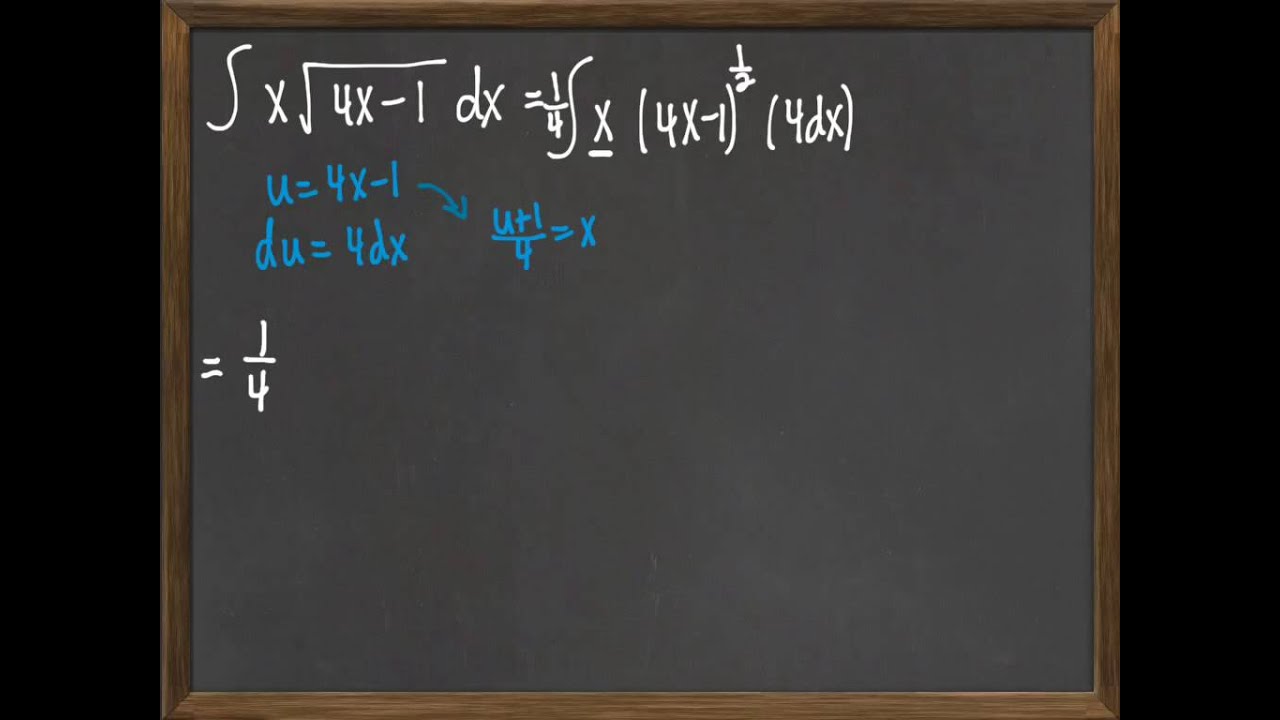 ∫ x√(4x-1) dx = 1/4 ∫ x (4x-1)^(1/2) (4dx)
u = 4x-1
du = 4dx
(u+1)/4 = x
= 1/4